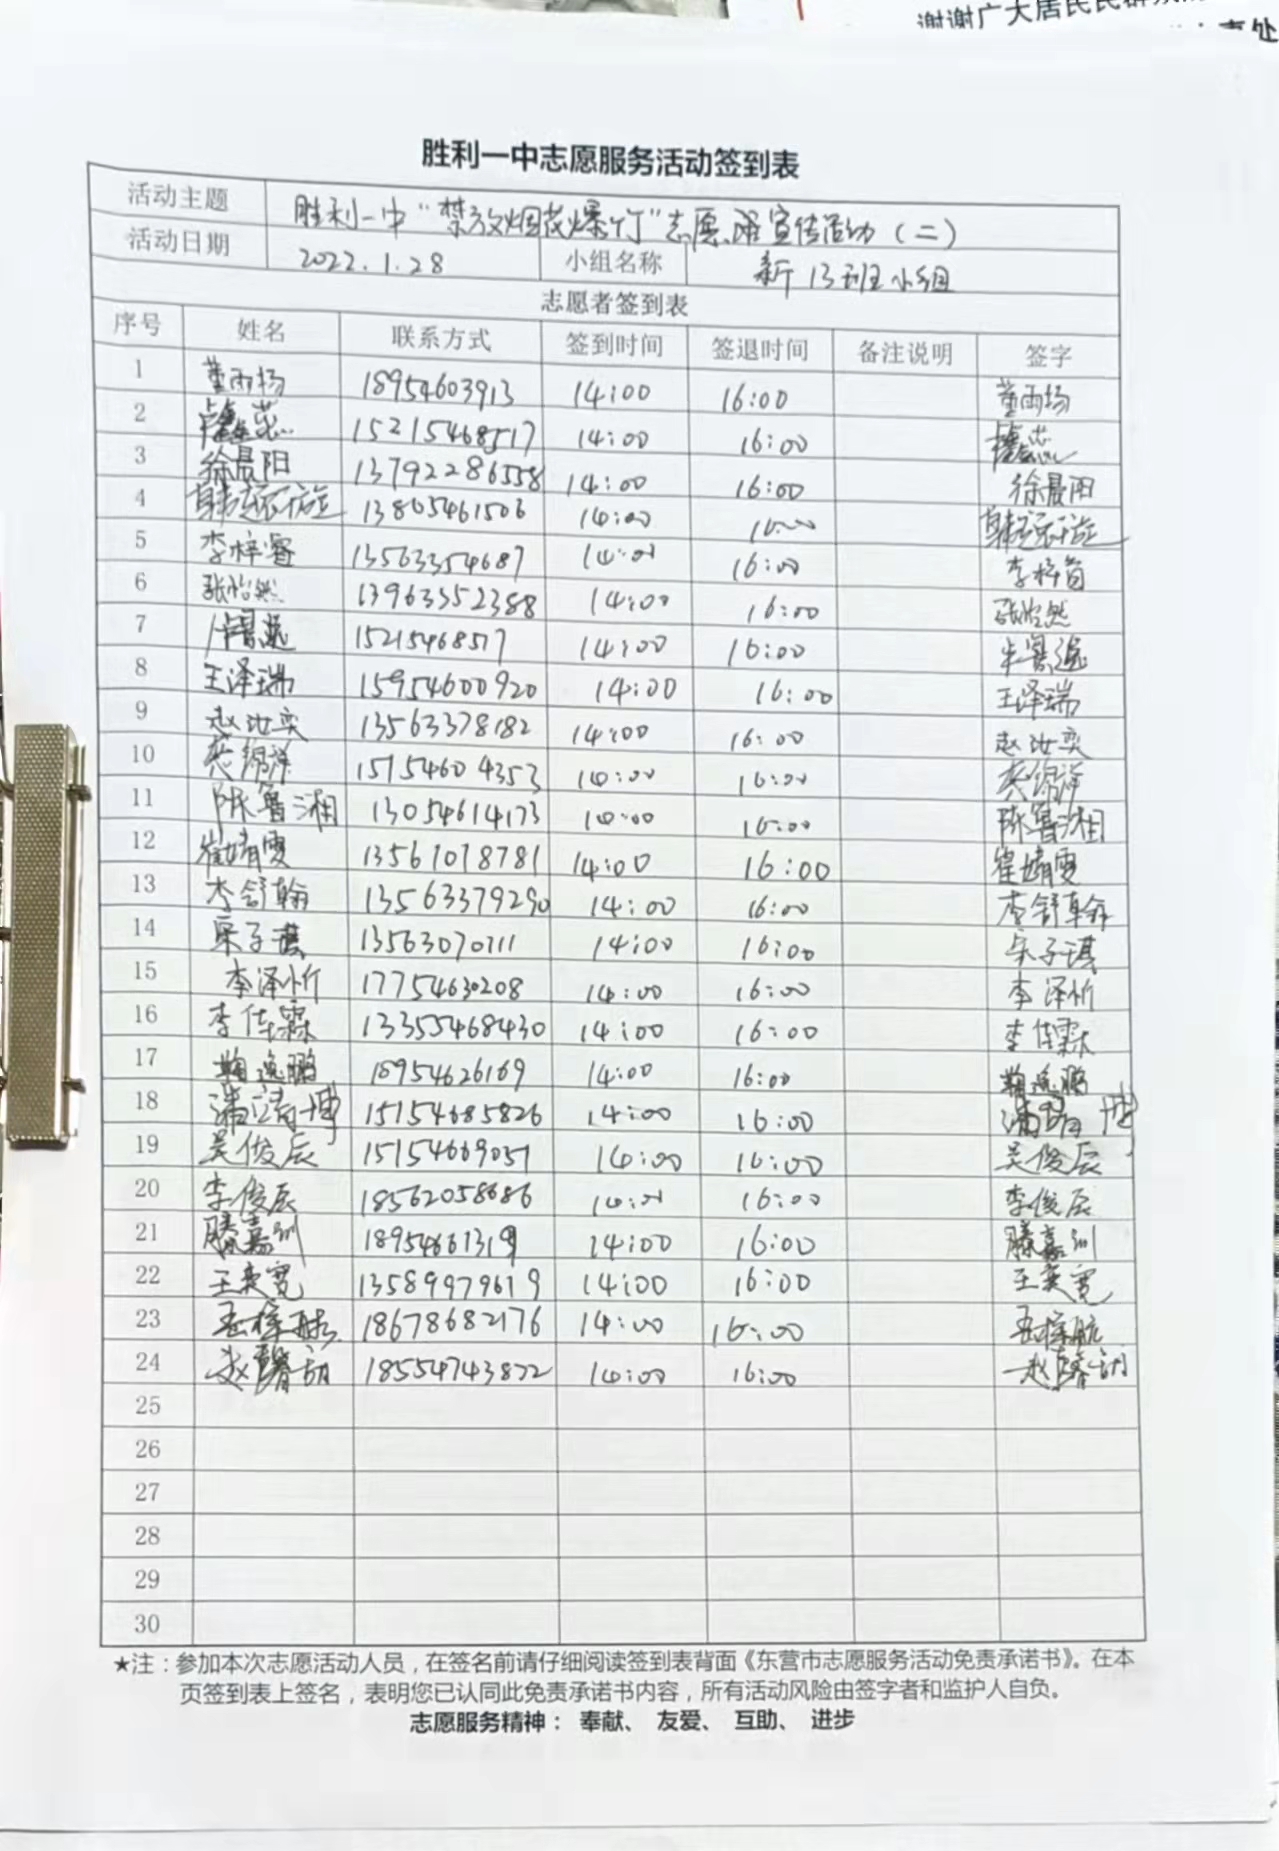 谢谢广大居民
胜利一中志愿服务活动签到表
活动主题 胜利一中“禁放烟花爆竹”志愿服宣传活动（二）
活动日期 2022.1.28 小组名称 新13班小组
志愿者签到表
序号 姓名 联系方式 签到时间 签退时间 备注说明 签字
1 董雨扬 18954603913 14:00 16:00 董雨扬
2 15215468517 14:00 16:00
3 徐晨阳 13792286558 14:00 16:00 徐晨阳
4 13805461506 14:00
5 李梓睿 13563354687 16:00
6 张怡然 13963352388 14:00 16:00 张怡然
7 15215468517 14:00 16:00
8 王泽瑞 15954600920 14:00 16:00 王泽瑞
9 赵汝奕 13563378182 14:00 16:00 赵汝奕
10 15154604353 14:00 16:00
11 陈鲁湘 13054614173 14:00 16:00 陈鲁湘
12 崔婧雯 13561078781 14:00 16:00 崔婧雯
13 李舒翰 13563379290 14:00 16:00 李舒翰
14 宋子琪 13563070711 14:00 16:00 宋子琪
15 李泽忻 17754630208 14:00 16:00 李泽忻
16 李佳霖 13355468430 14:00 16:00 李佳霖
17 鞠逸鹏 18954626169 14:00 16:00 鞠逸鹏
18 潘靖博 15154685826 14:00 16:00 潘靖博
19 吴俊辰 15154669051 14:00 16:00 吴俊辰
20 李俊辰 18562058686 16:00 李俊辰
21 滕嘉训 18954661319 14:00 16:00 滕嘉训
22 王奕宽 13589979619 14:00 16:00 王奕宽
23 18678682176 14:00 16:00
24 赵馨韵 18554743822 14:00 16:00 赵馨韵
25
26
27
28
29
30
★注：参加本次志愿活动人员，在签名前请仔细阅读签到表背面《东营市志愿服务活动免责承诺书》。在本
页签到表上签名，表明您已认同此免责承诺书内容，所有活动风险由签字者和监护人自负。
志愿服务精神： 奉献、 友爱、 互助、 进步